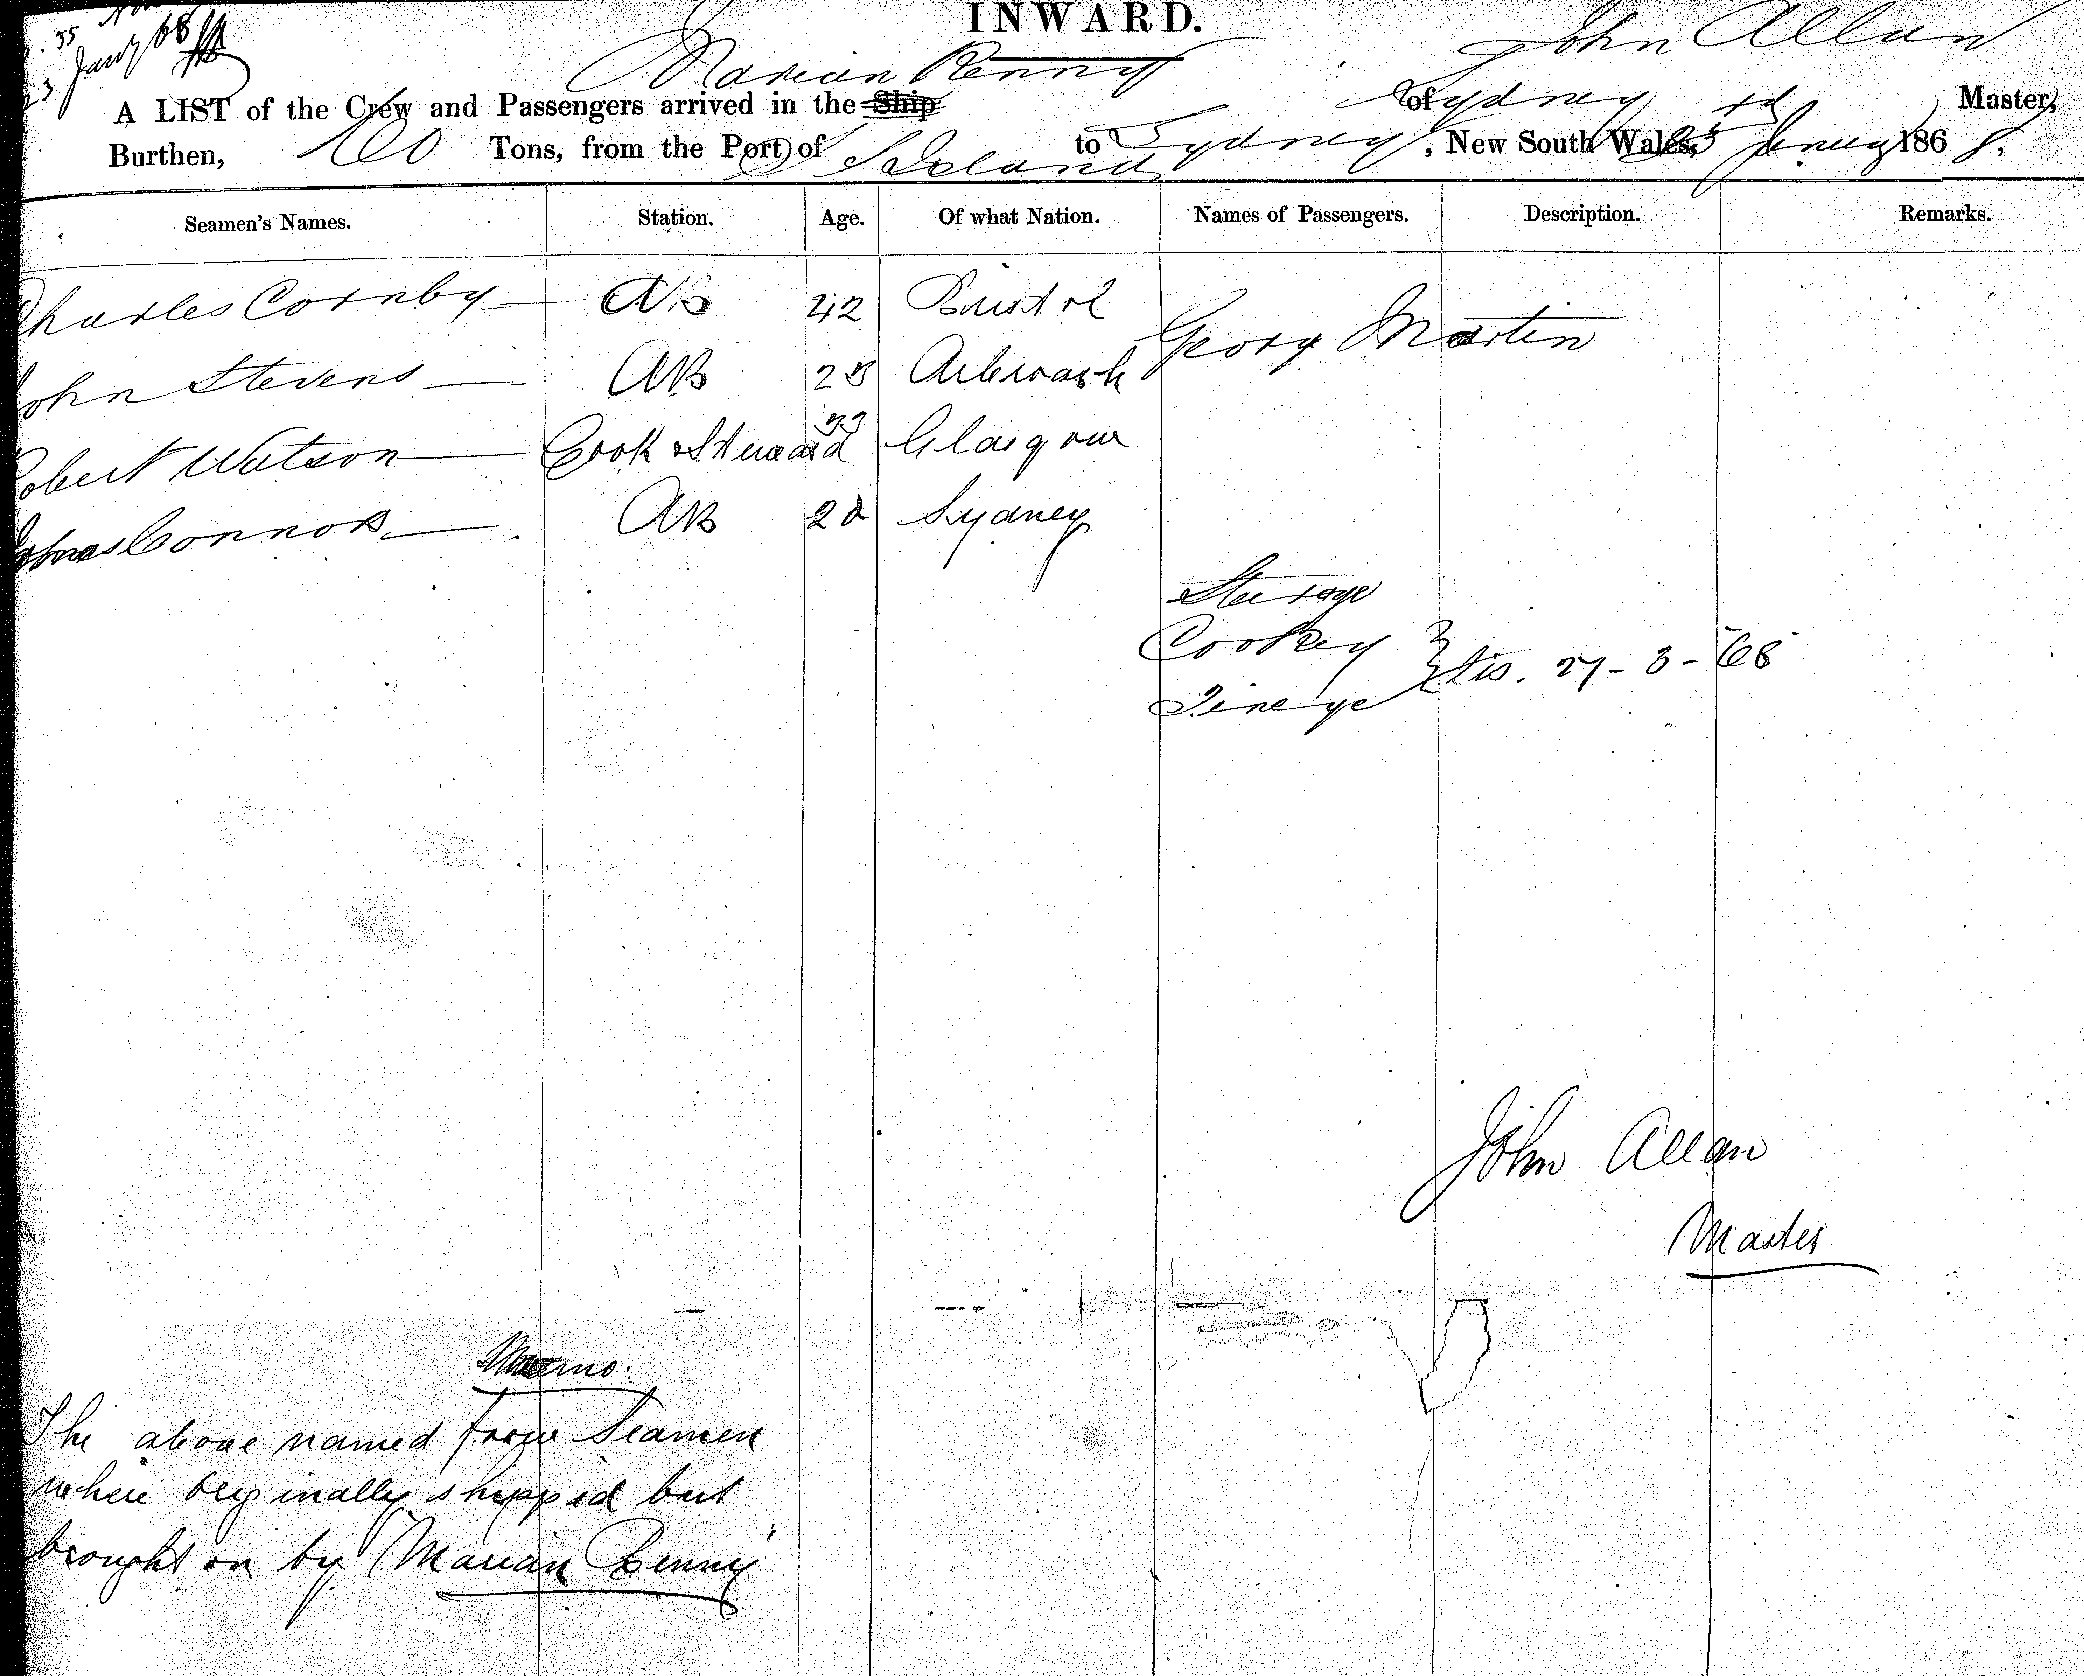 35
Jany 68
INWARD.
A LIST of the Crew and Passengers arrived in the Ship Marian Renny of Sydney John Allan Master,
Burthen, 60 Tons, from the Port of S S Island to Sydney, New South Wales, 23rd Jany 1868.
Seamen's Names. Station. Age. Of what Nation. Names of Passengers. Description. Remarks.
Charles Cornby AB 42 Bristol Georg Martin
John Stevens AB 28 Arbroath
Robert Watson Cook & Steward 33 Glasgow
Connor AB 22 Sydney
Steerage
Cookey
27-3-68
John Allan
Master
Memo.
The above named four Seamen
where originally shipped but
brought on by "Marian Renny"